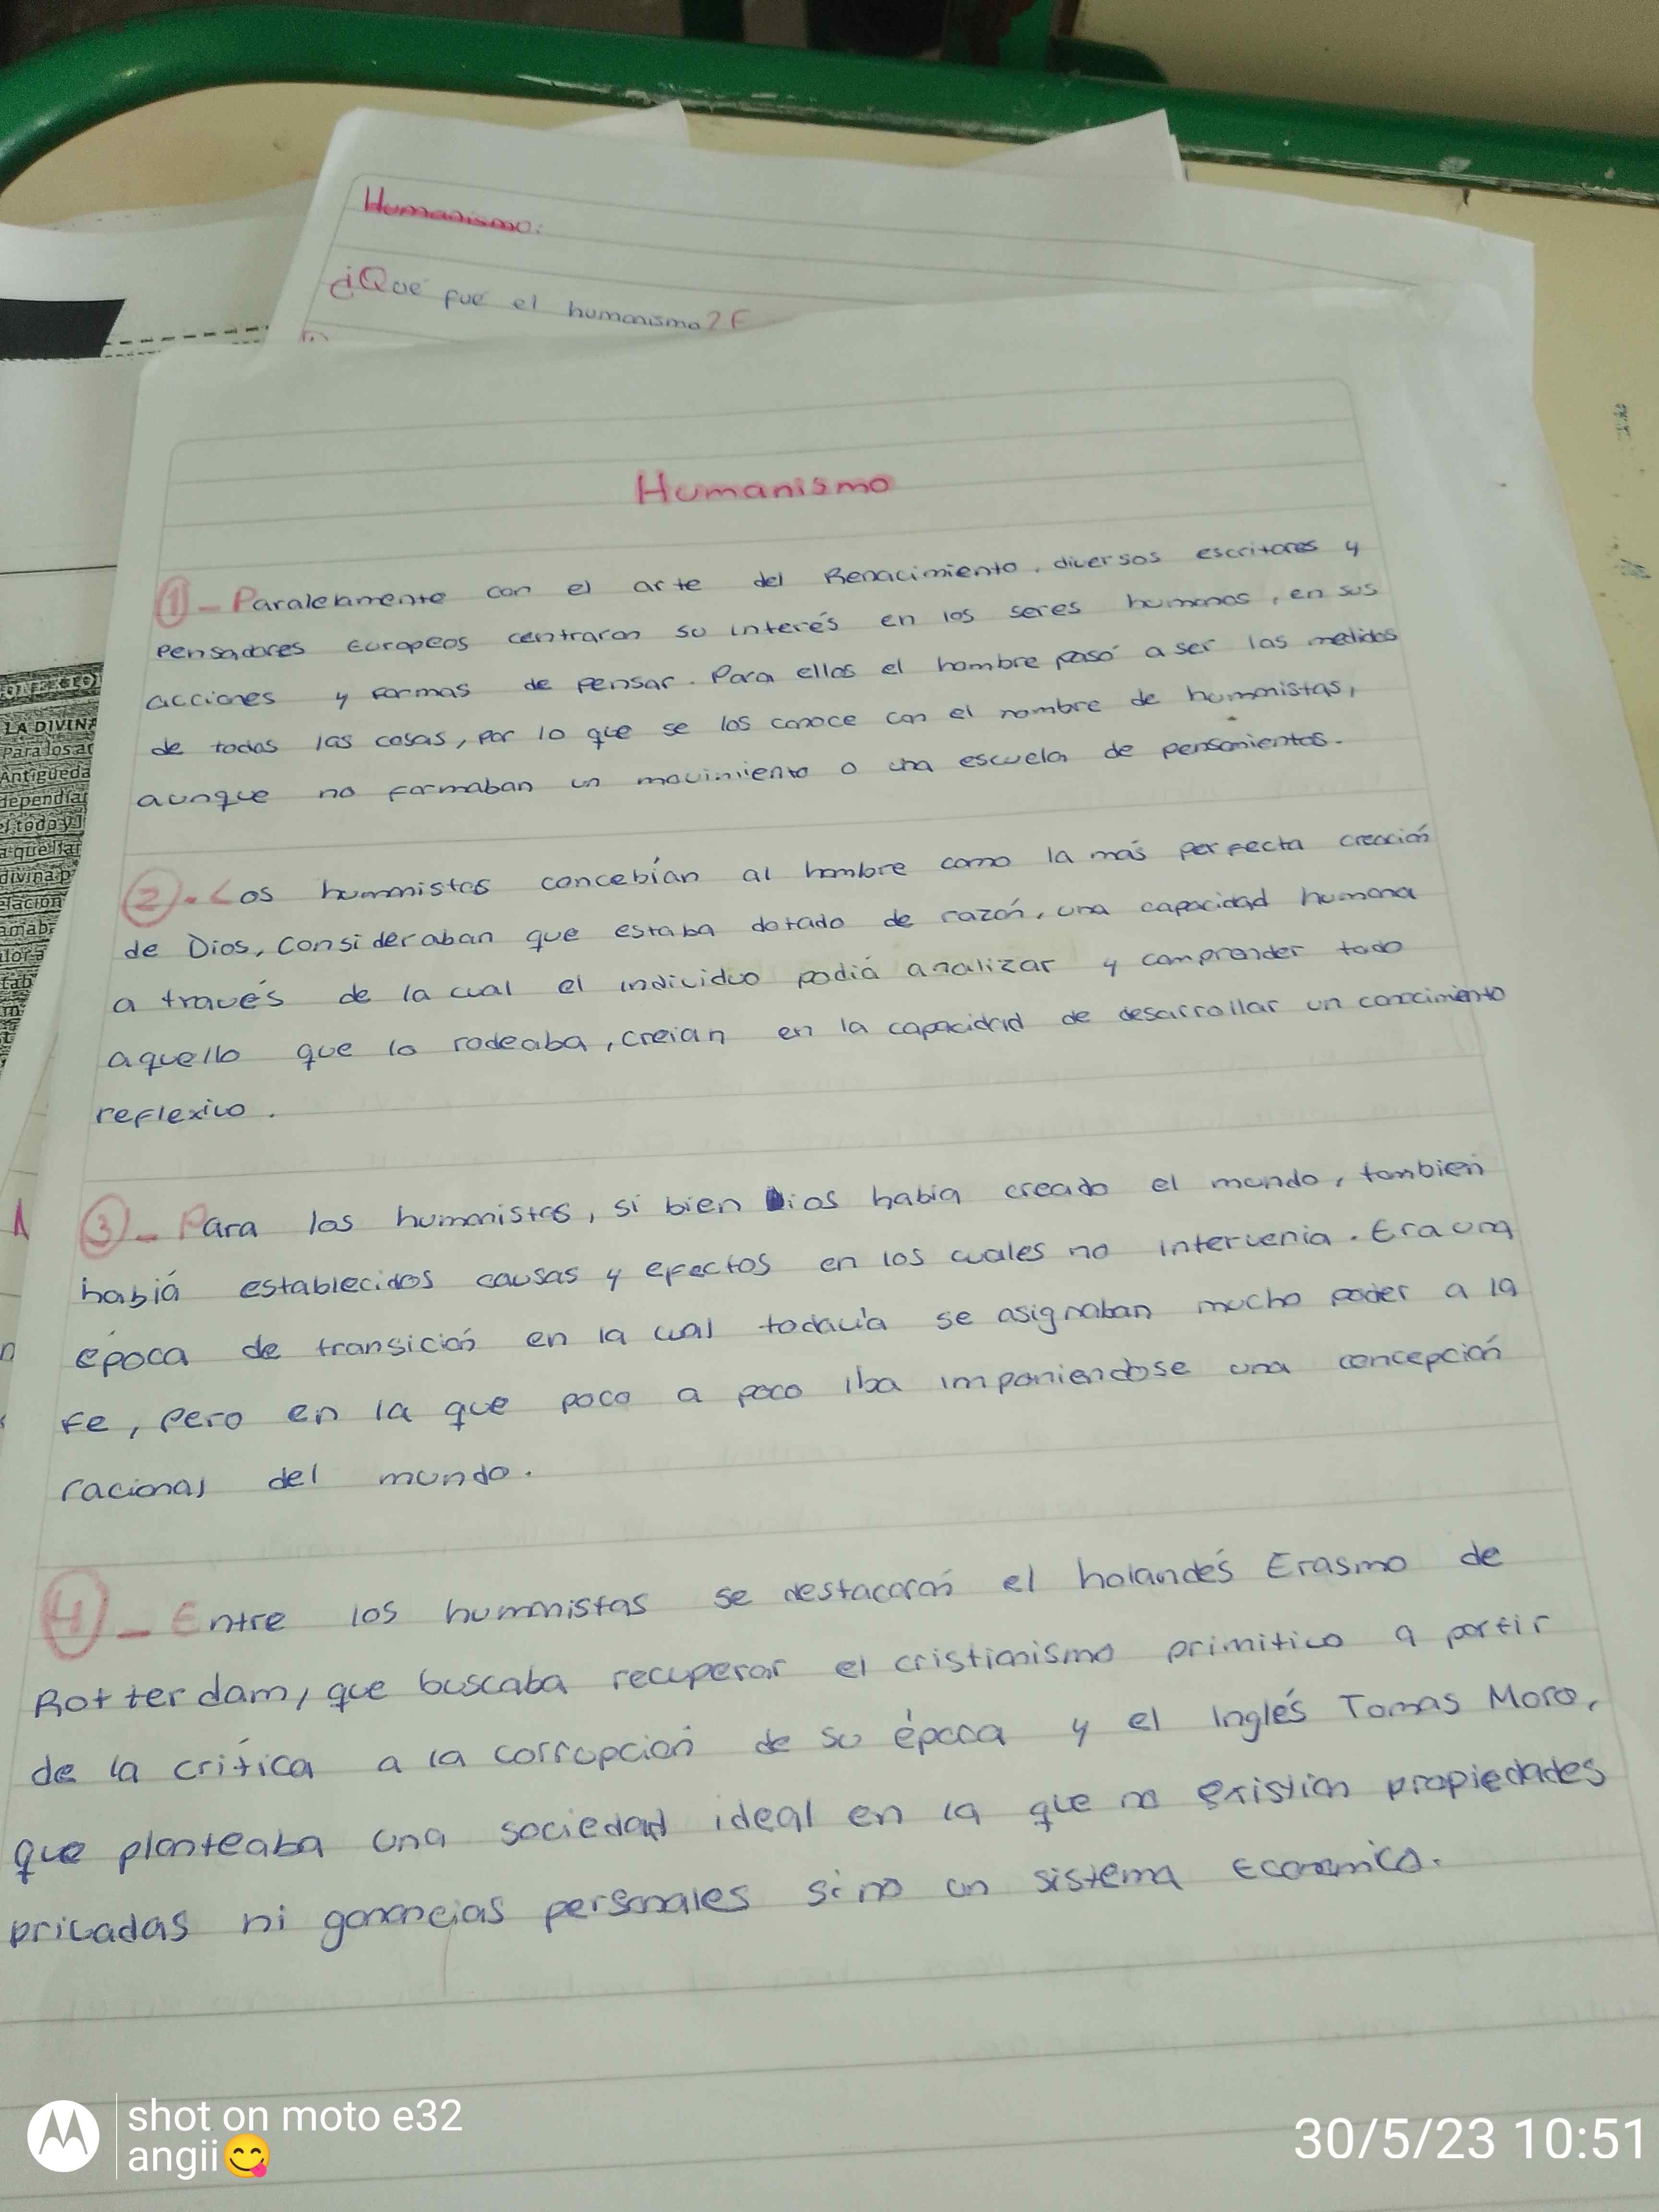 Humanismo:
¿Qué fué el humanismo? E
ONTEXTO
LA DIVINA
Para los a
Antigüeda
dependía
el todo y l
aquella
divina p
elación
Humanismo
1- Paralelamente con el arte del Renacimiento, diversos escritores y
pensadores Europeos centraron su interés en los seres humanos, en sus
acciones y formas de pensar. Para ellos el hombre pasó a ser las medidas
de todas las cosas, por lo que se los conoce con el nombre de humanistas,
aunque no formaban un movimiento o una escuela de pensamientos.
2.- Los humanistas concebían al hombre como la más perfecta creación
de Dios, consideraban que estaba dotado de razón, una capacidad humana
a través de la cual el individuo podiá analizar y comprender todo
aquello que lo rodeaba, creian en la capacidad de desarrollar un conocimiento
reflexivo.
3- Para los humanistas, si bien Dios había creado el mundo, tambien
habiá establecidos causas y efectos en los cuales no intervenia. Era una
época de transición en la cual todavía se asignaban mucho poder a la
Fe, pero en la que poco a poco iba imponiendose una concepción
racional del mundo.
4- Entre los humanistas se destacarón el holandés Erasmo de
Rotterdam, que buscaba recuperar el cristianismo primitivo a partir
de la crítica a la corrupción de su época y el Inglés Tomas Moro,
que planteaba una sociedad ideal en la que no existian propiedades
privadas ni ganancias personales sino un sistema Economico.
shot on moto e32
angii😋
30/5/23 10:51